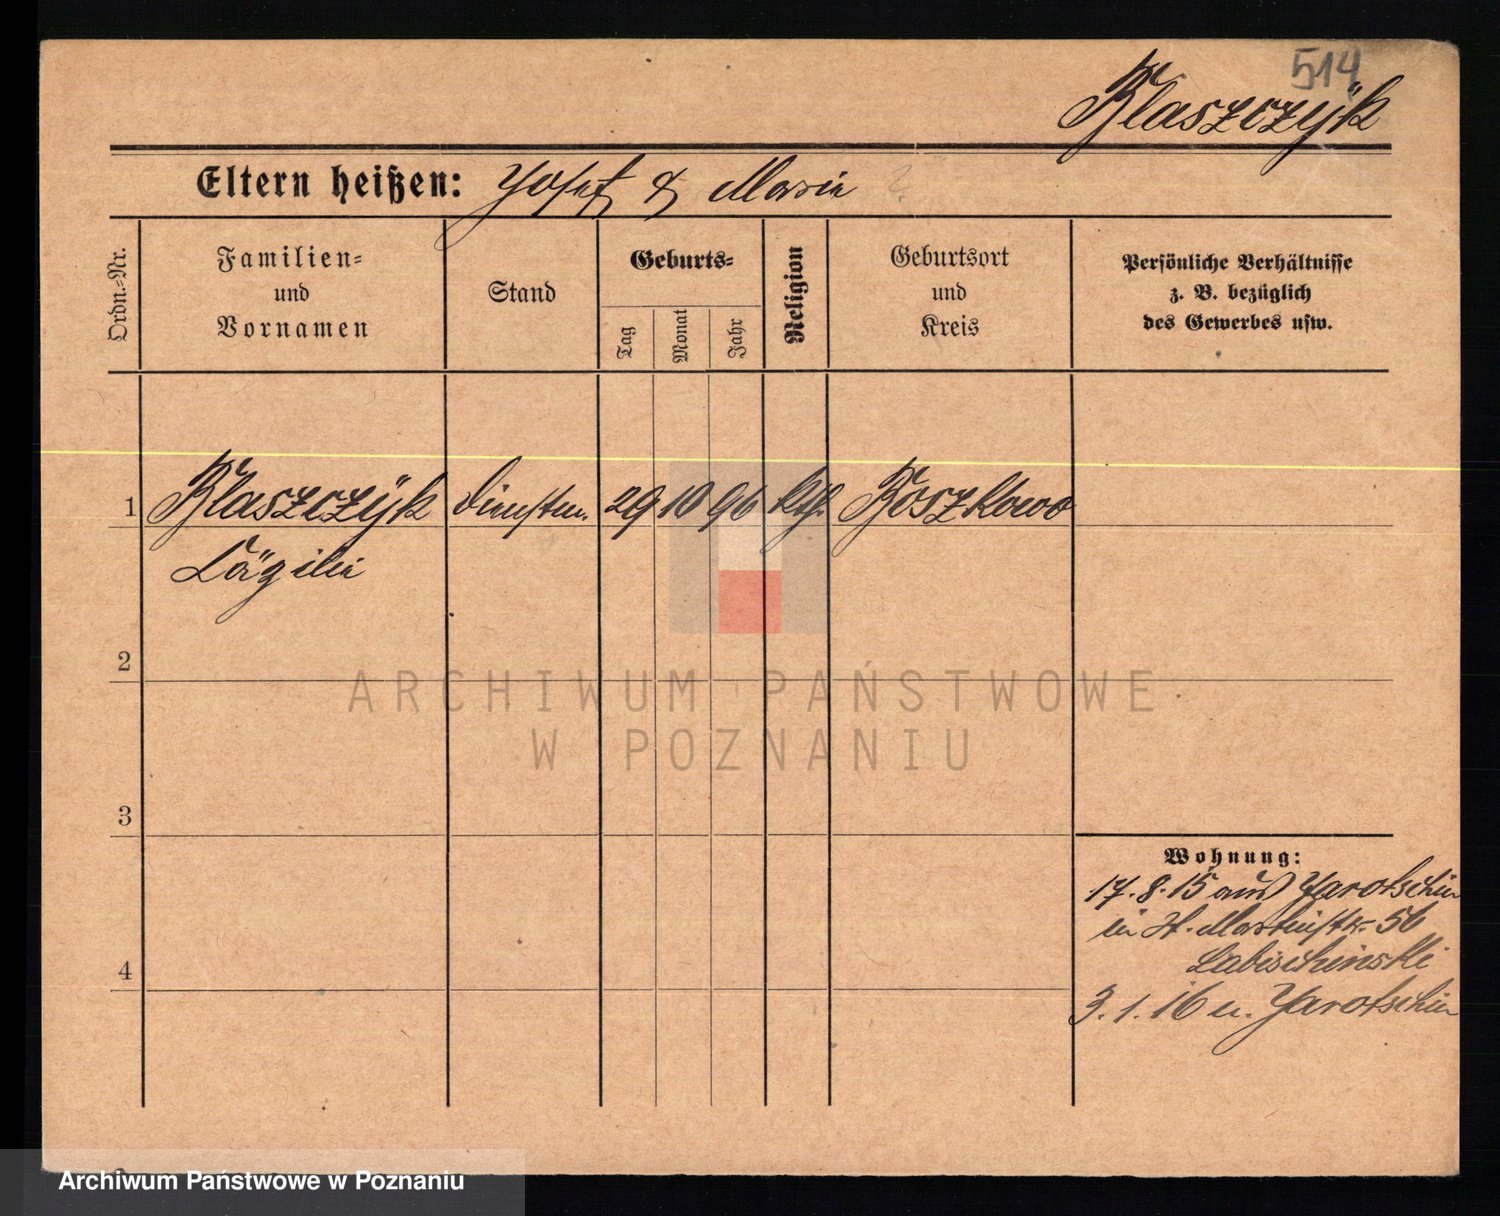 514
Blaszczÿk
Eltern heißen: Josef & Marie ?
Ordn.=Nr.
Familien=
und
Vornamen
Stand
Geburts=
Tag
Monat
Jahr
Religion
Geburtsort
und
Kreis
Persönliche Verhältnisse
z. B. bezüglich
des Gewerbes usw.
1 Blaszczÿk Dienstm. 29 10 96 kth. Boszkowo
Cäzilie
2
3
4
Wohnung:
17. 8. 15 aus Jarotschin
in St. Martinstr. 56
Labischinski
3. 1. 16 n. Jarotschin
ARCHIWUM PAŃSTWOWE
W POZNANIU
Archiwum Państwowe w Poznaniu